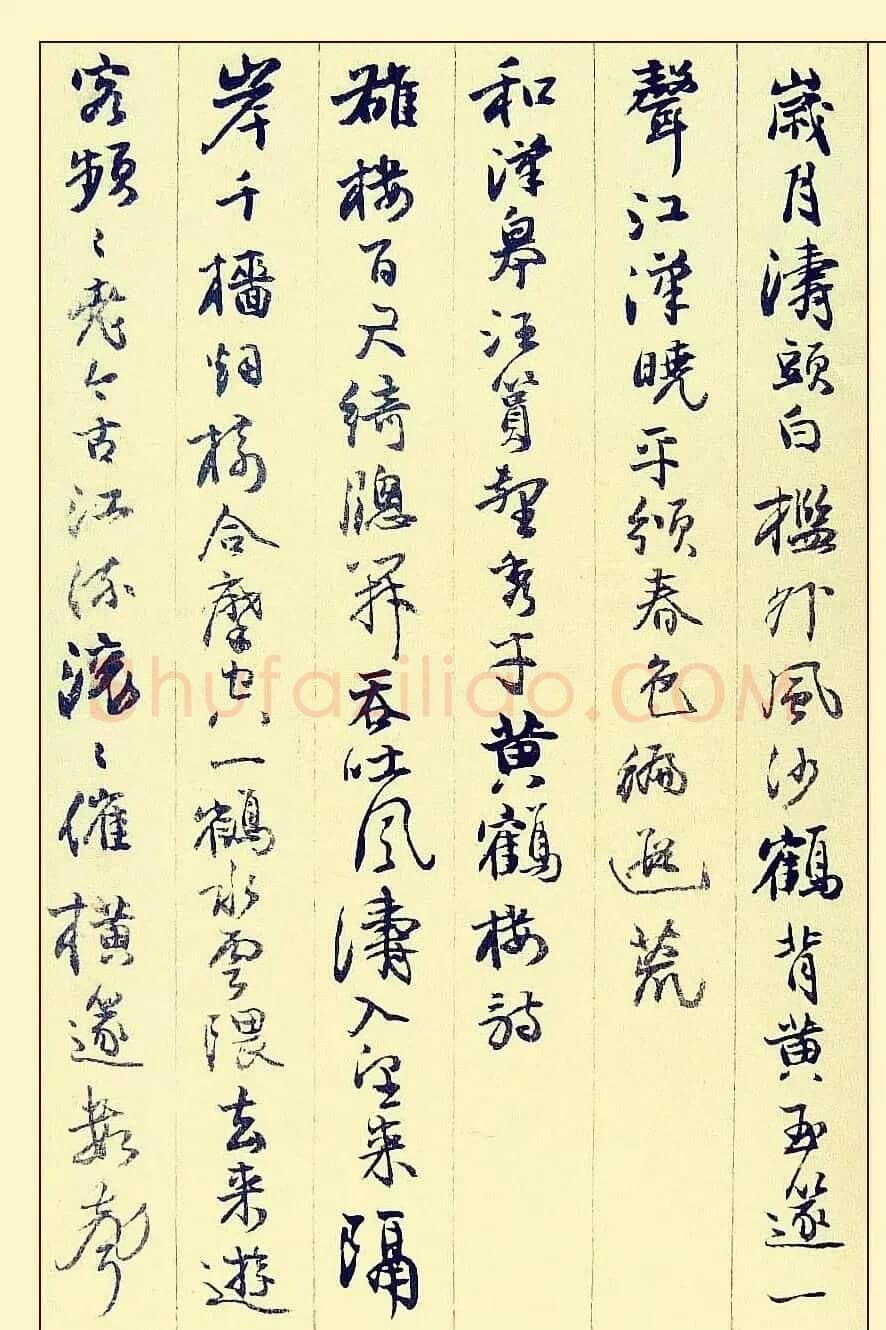 歲月濤頭白檻外風沙鶴背黃玉篴一
聲江漢曉平領春色徧遐荒
和漢皋汪篔墅秀才黃鶴樓詩
雄樓百尺綺牕開吞吐風濤入望來隔
岸千檣烟樹合摩空一鶴水雲隈去來遊
客頻〻老今古江流滾〻催橫篴數聲
shufaziliao.COM